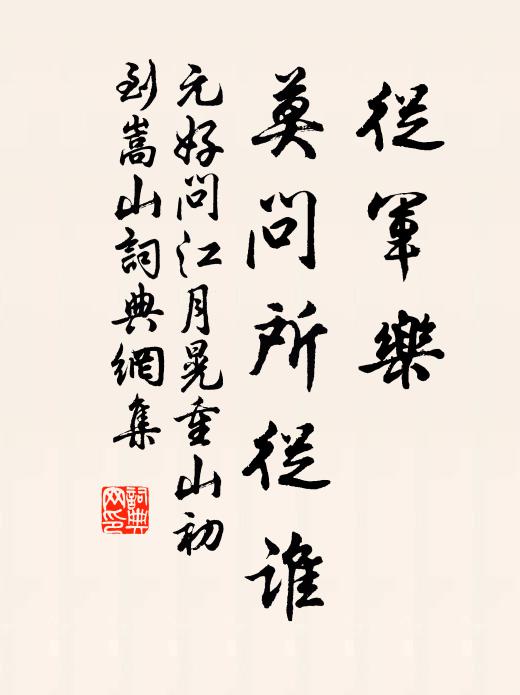 從軍樂
莫問所從誰
元好問江月晃重山初
到嵩山詞典網集
詞典
网印